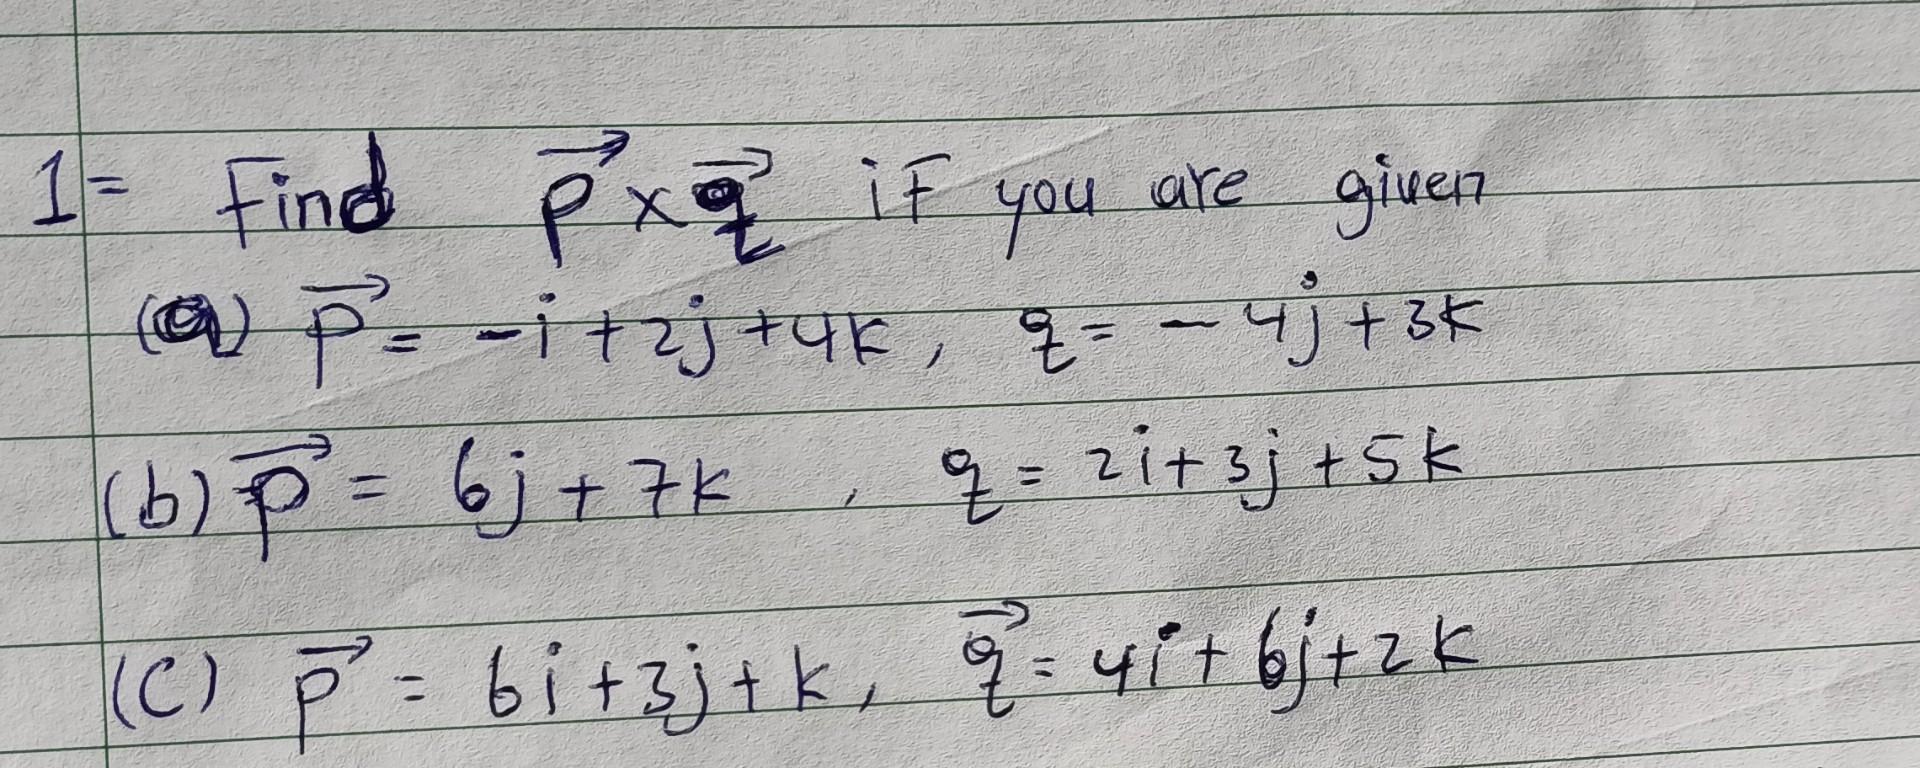 1= Find p⃗ × q⃗ if you are given
(a) p⃗ = -i + 2j + 4k, q = - 4j + 3k
(b) p⃗ = 6j + 7k , q = 2i + 3j + 5k
(C) p⃗ = 6i + 3j + k, q⃗ = 4i + 6j + 2k